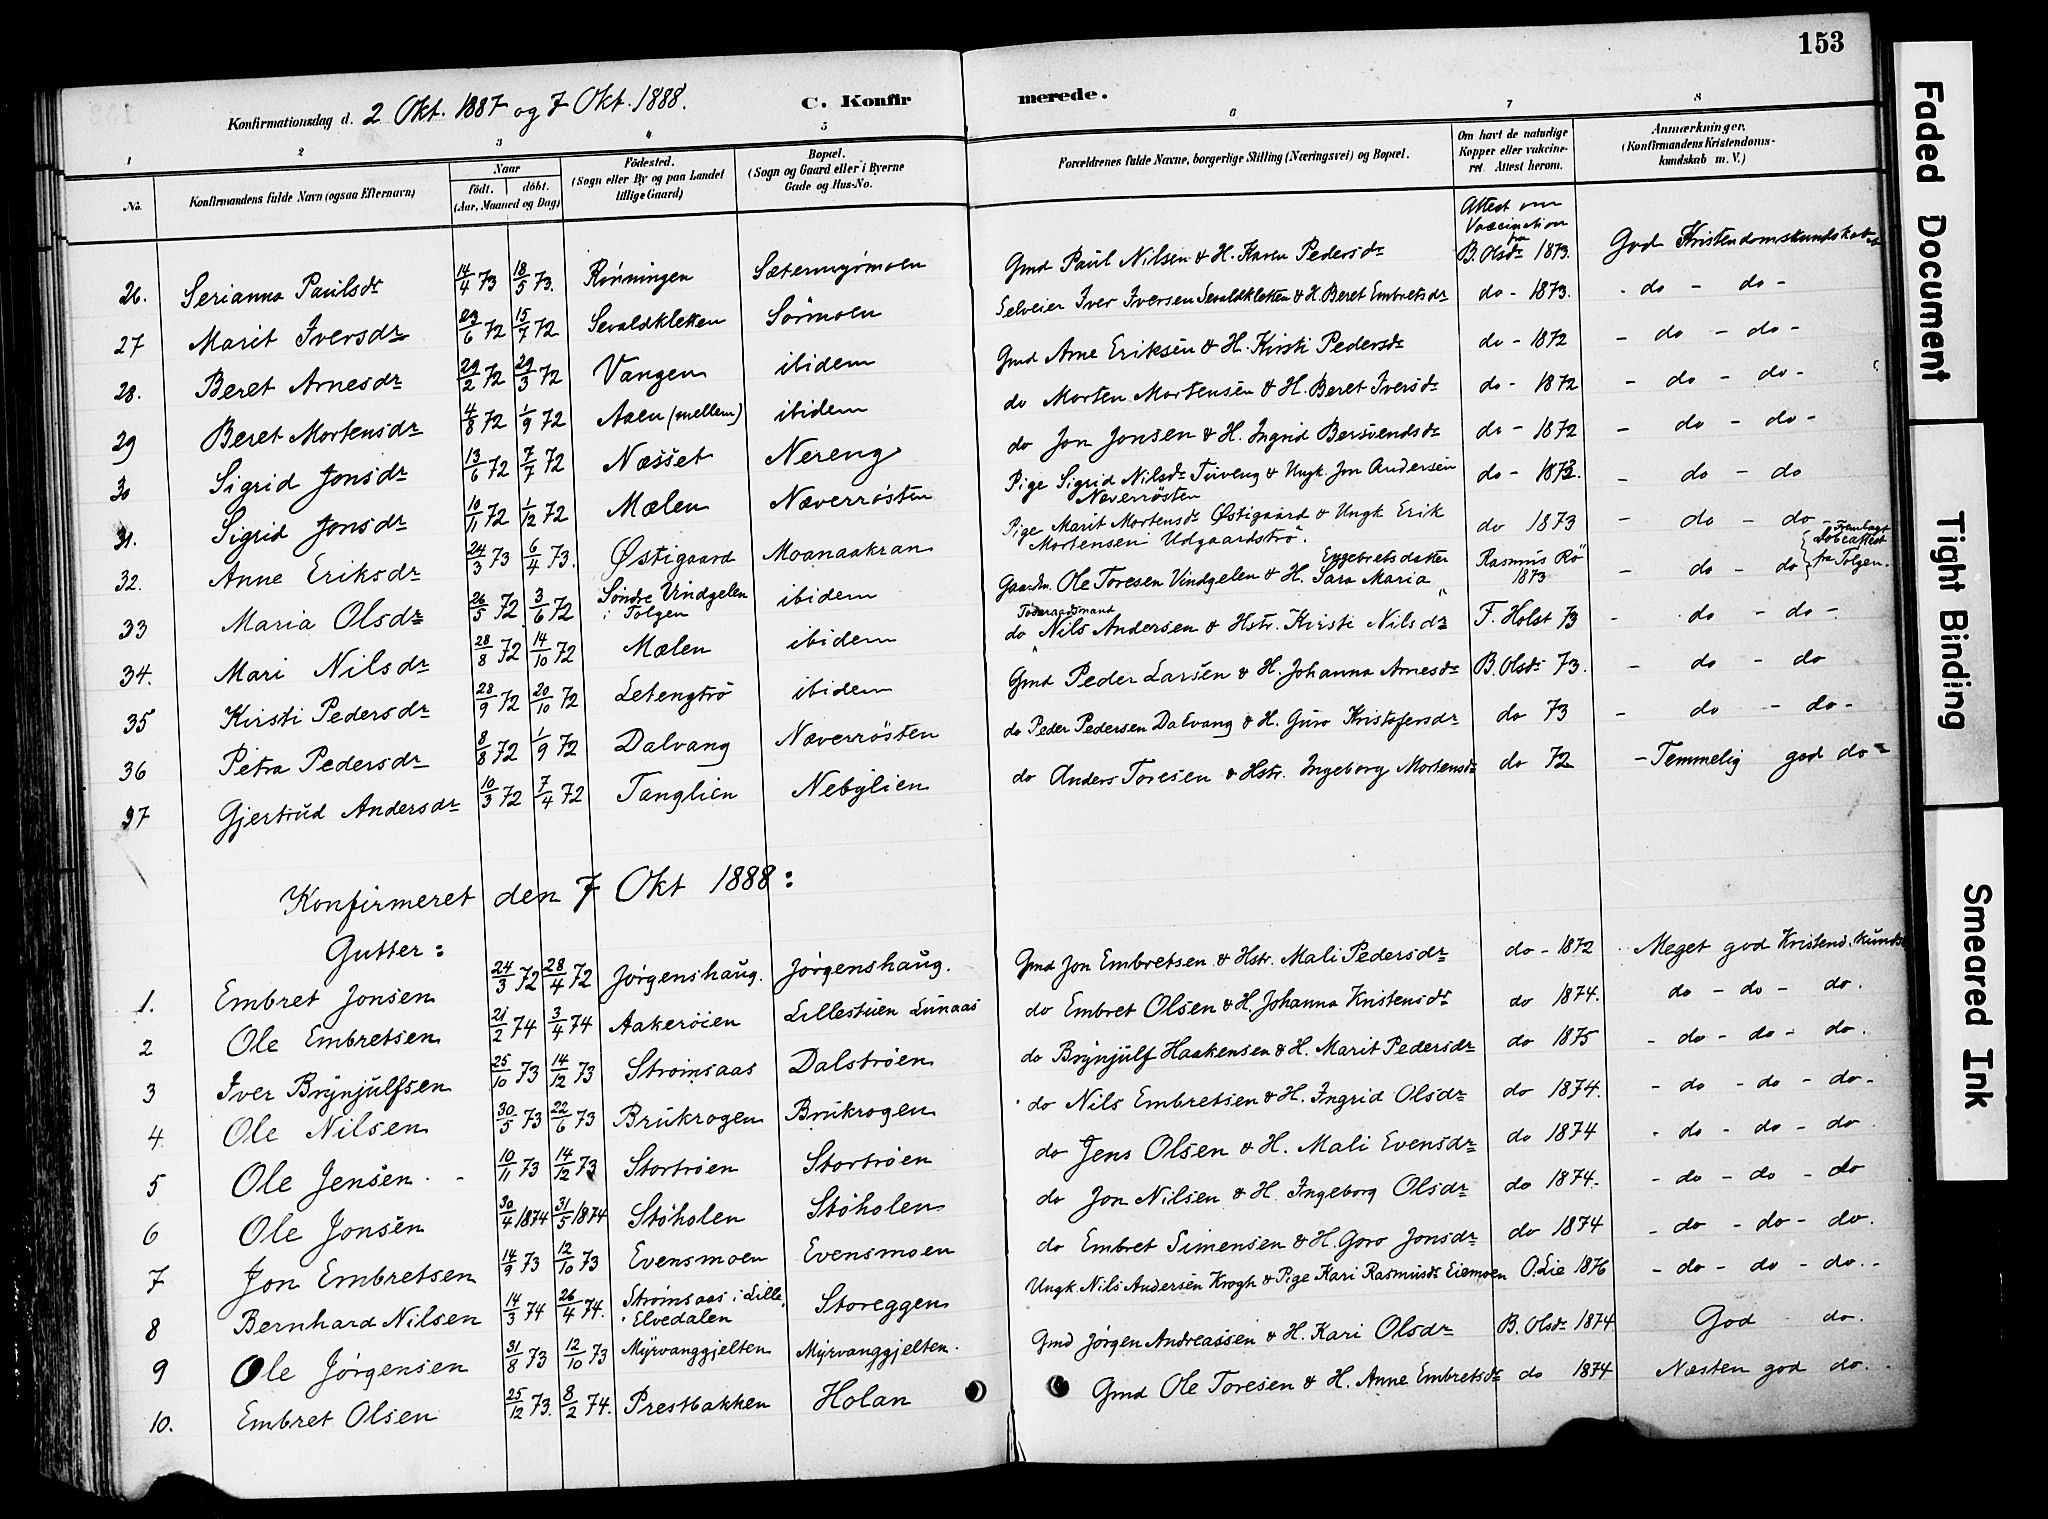 153
Konfirmationsdag d. 2 Okt. 1887 og 7 Okt. 1888. C. Konfirmerede.
1 2 3 4 5 6 7 8
No. Konfirmandens fulde Navn (ogsaa Efternavn) Naar født. døbt. (Aar, Maaned og Dag) Fødested. (Sogn eller By og paa Landet tillige Gaard) Bopæl. (Sogn og Gaard eller i Byerne Gade og Hus-No. Forældrenes fulde Navne, borgerlige Stilling (Næringsvei) og Bopæl. Om havt de naturlige Kopper eller vakcineret. Attest herom. Anmærkninger. (Konfirmandens Kristendomskundskab m. V.)
26. Serianna Paulsdr 14/4 73 18/5 73. Rønningen Sætermyrmoen Gmd Paul Nilsen & H. Karen Pedersdr Attest om Vaccination fra B. Olsdr 1873. God Kristendomskundskab
27 Marit Iversdr 23/6 72 15/7 72 Sevaldkletten Sørmoen Selveier Iver Iversen Sevaldkletten & H. Beret Embretsdr do - 1873. - do - do -
28. Beret Arnesdr 29/2 72 29/3 72 Vangen ibidem Gmd Arne Eriksen & H. Kirsti Pedersdr do - 1872 - do - do -
29 Beret Mortensdr 4/8 72 1/9 72 Aaen (mellem) ibidem do Morten Mortensen & H. Beret Iversdr do - 1872 - do - do -
30 Sigrid Jonsdr 13/6 72 7/7 72 Næsset Nereng do Jon Jonsen & H. Ingrid Bersvendsdr do - 1872 - do - do -
31. Sigrid Jonsdr 10/11 72 1/12 72 Mælen Næverrösten Pige Sigrid Nilsdr Tuveng & Ungk. Jon Andersen Næverrösten do - 1873. - do - do
32. Anne Eriksdr 24/3 73 6/4 73. Østigaard Moanaakran Pige Marit Mortensdr Østigaard & Ungk Erik Mortensen Udgaardstrø. do 1873 - do - do -
33 Maria Olsdr 26/5 72 3/6 72 Söndre Vindgelen i Tolgen ibidem Gaardm. Ole Toresen Vindgelen & H. Sara Maria Engebretsdatter Rasmus Rö 1873 - do - do { Fremlagt dobeattest fra Tolgen.
34. Mari Nilsdr 28/8 72 14/10 72 Mælen ibidem do Føderaadsmand Nils Andersen & Hstr. Kirsti Nilsdr F. Holst 73 - do - do -
35 Kirsti Pedersdr 28/9 72 20/10 72 Letengtrø ibidem Gmd Peder Larsen & H. Johanna Arnesdr B. Olsdr 73. - do - do
36 Petra Pedersdr 8/8 72 1/9 72 Dalvang Næverrösten do Peder Pedersen Dalvang & H. Guro Kristofersdr do 73 - do - do -
37 Gjertrud Andersdr 10/3 72 7/4 72 Tanglien Nebylien do Anders Toresen & Hstr. Ingeborg Mortensdr do 72 - Temmelig god do -
Konfirmeret den 7 Okt 1888:
Gutter:
1. Embret Jonsen 24/3 72 28/4 72 Jørgenshaug. Jørgenshaug. Gmd Jon Embretsen & Hstr. Mali Pedersdr do - 1872 Meget god Kristend. kunds
2 Ole Embretsen 21/2 74 3/4 74 Aakerøien Lillestuen Lunaas do Embret Olsen & H. Johanna Kristensdr do 1874. do - do - do.
3 Iver Brynjulfsen 25/10 73 14/12 73 Strømsaas Dalstrøen do Brynjulf Haakensen & H. Marit Pedersdr do 1875 - do - do - do.
4. Ole Nilsen 30/5 73 22/6 73 Brukrogen Brukrogen do Nils Embretsen & H. Ingrid Olsdr do 1874. - do - do - do -
5 Ole Jensen. - 10/11 73 14/12 73 Stortrøen Stortrøen do Jens Olsen & H. Mali Evensdr do 1874 - do - do - do
6 Ole Jonsen 30/4 1874 31/5 1874 Støholen Støholen do Jon Nilsen & H. Ingeborg Olsdr do 1874. - do - do - do
7 Jon Embretsen 14/9 73 12/10 73 Evensmoen Evensmoen do Embret Simensen & H. Goro Jonsdr do 1874 - do - do - do.
8 Bernhard Nilsen 14/3 74 26/4 74. Strømsaas i Lille Elvedalen Storeggen Ungk. Nils Andersen Krogh & Pige Kari Rasmusdr Eiemoen O. Lie 1876 - do - do - do. -
9 Ole Jørgensen 31/8 73 12/10 73 Myrvanggjelten Myrvanggjelten. Gmd Jørgen Andreassen & H. Kari Olsdr B. Olsdr 1874. God do.
10. Embret Olsen 25/12 73. 8/2 74. Prestbakken Holan Gmd Ole Toresen & H. Anne Embretsdr do 1874 Næsten god do.
Faded Document
Tight Binding
Smeared Ink